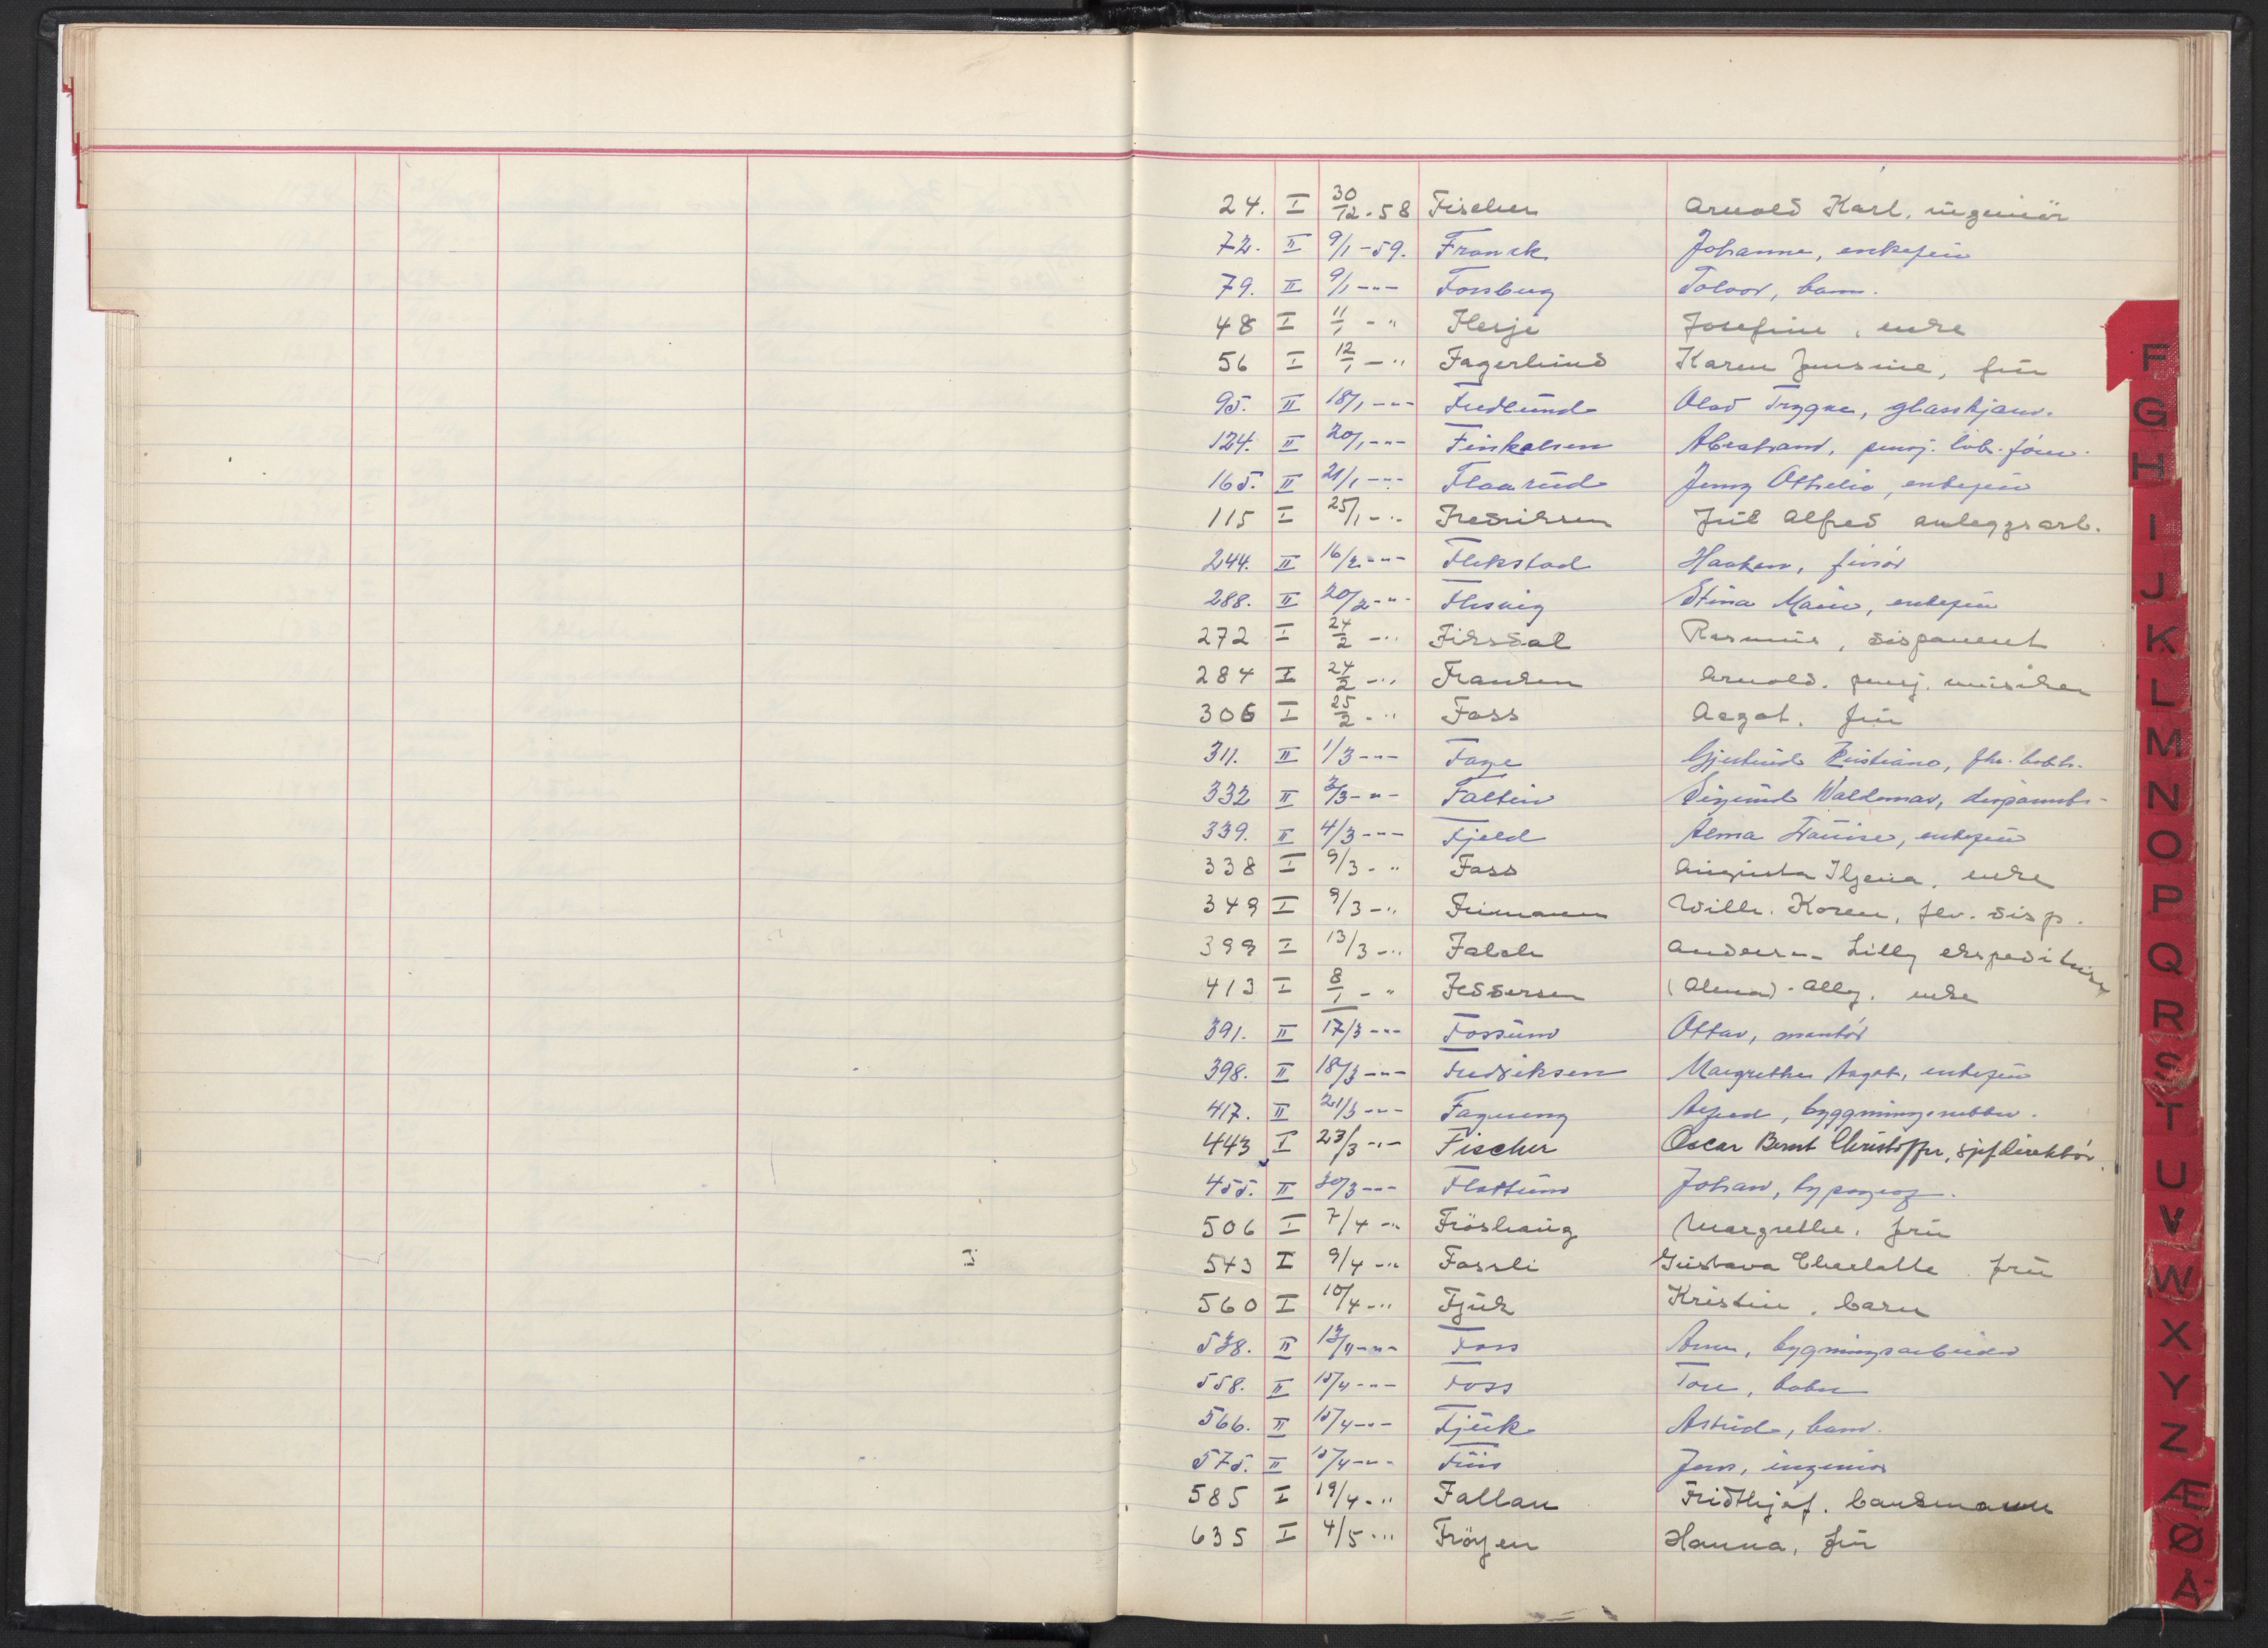 24. I 30/12-58 Fischer Arnold Karl, ingeniör
72. II 9/1-59. Franck Johanne, enkefrü
79. II 9/1-"- Forsberg barn.
48 I 11/1 -" Flesje Josefine, enke
56 I 12/1 -" Fagerlund Karen Jensine, frü
95. II 18/1-"- Fredlund Olav Trygve,
124. II 20/1-"- Finkelsen Abraham, pensj.
165. II 21/1-"- Flaarüd Jenny Othelie, enkefrü
115 I 25/1-" Fredriksen Jül Alfred anleggsarb.
244. II 16/2-"- Flekstad Haakon, frisör
288. II 20/2-"- Flesvig Stina Marie, enkefrü
272 I 24/2 -" Firsdal Rasmüs, disponent
284 I 24/2 -" Fransen Arnold. pensj. müsiker
306 I 25/2 -" Foss Aagot. frü
311. II 1/3-"- Faye Gjertrüd Kristiane, fhv.
332 II 3/3-"- Faltin Sigürd Waldemar,
339. II 4/3-"- Fjeld Alma Lovise, enkefrü
338 I 9/3 -" Foss Augusta enke
349 I 9/3-" Wilh. Koren, fhv. disp.
399 I 13/3-" Falch Anders-- Lilly ekspeditrise
413 I 8/1 -" Feddersen (Alma) - Ally. enke
391. II 17/3-"- Fossüm Ottar, montör
398. II 18/3-"- Fredriksen Margrethe Aagot, enkefrü
417. II 21/3-"- Fagereng Alfred,
443 I 23/3-"- Fischer Oscar Bernt Christoffer, sjefdirektör.
455. II 30/3-"- Flattüm Johan, typograf.
506 I 7/4 -" Fröshaüg Margrethe. frü
543 I 9/4 -" Fossli Güstava Charlotte. frü
560 I 10/4-" Fjük Kristin, barn
538. II 13/4-"- Foss Arne, bygningsarbeider
558. II 15/4-"- Foss Tore,
566. II 15/4-"- Fjük Astrid, barn.
575. II 15/4-"- Friis Jens, ingeniör
585 I 19/4-" Fallan Fridthjof. bankmann
635 I 4/5-" Fröyen Hanna, frü
F
G
H
I
J
K
L
M
N
O
P
Q
R
S
T
U
V
W
X
Y
Z
Æ
Ø
Å